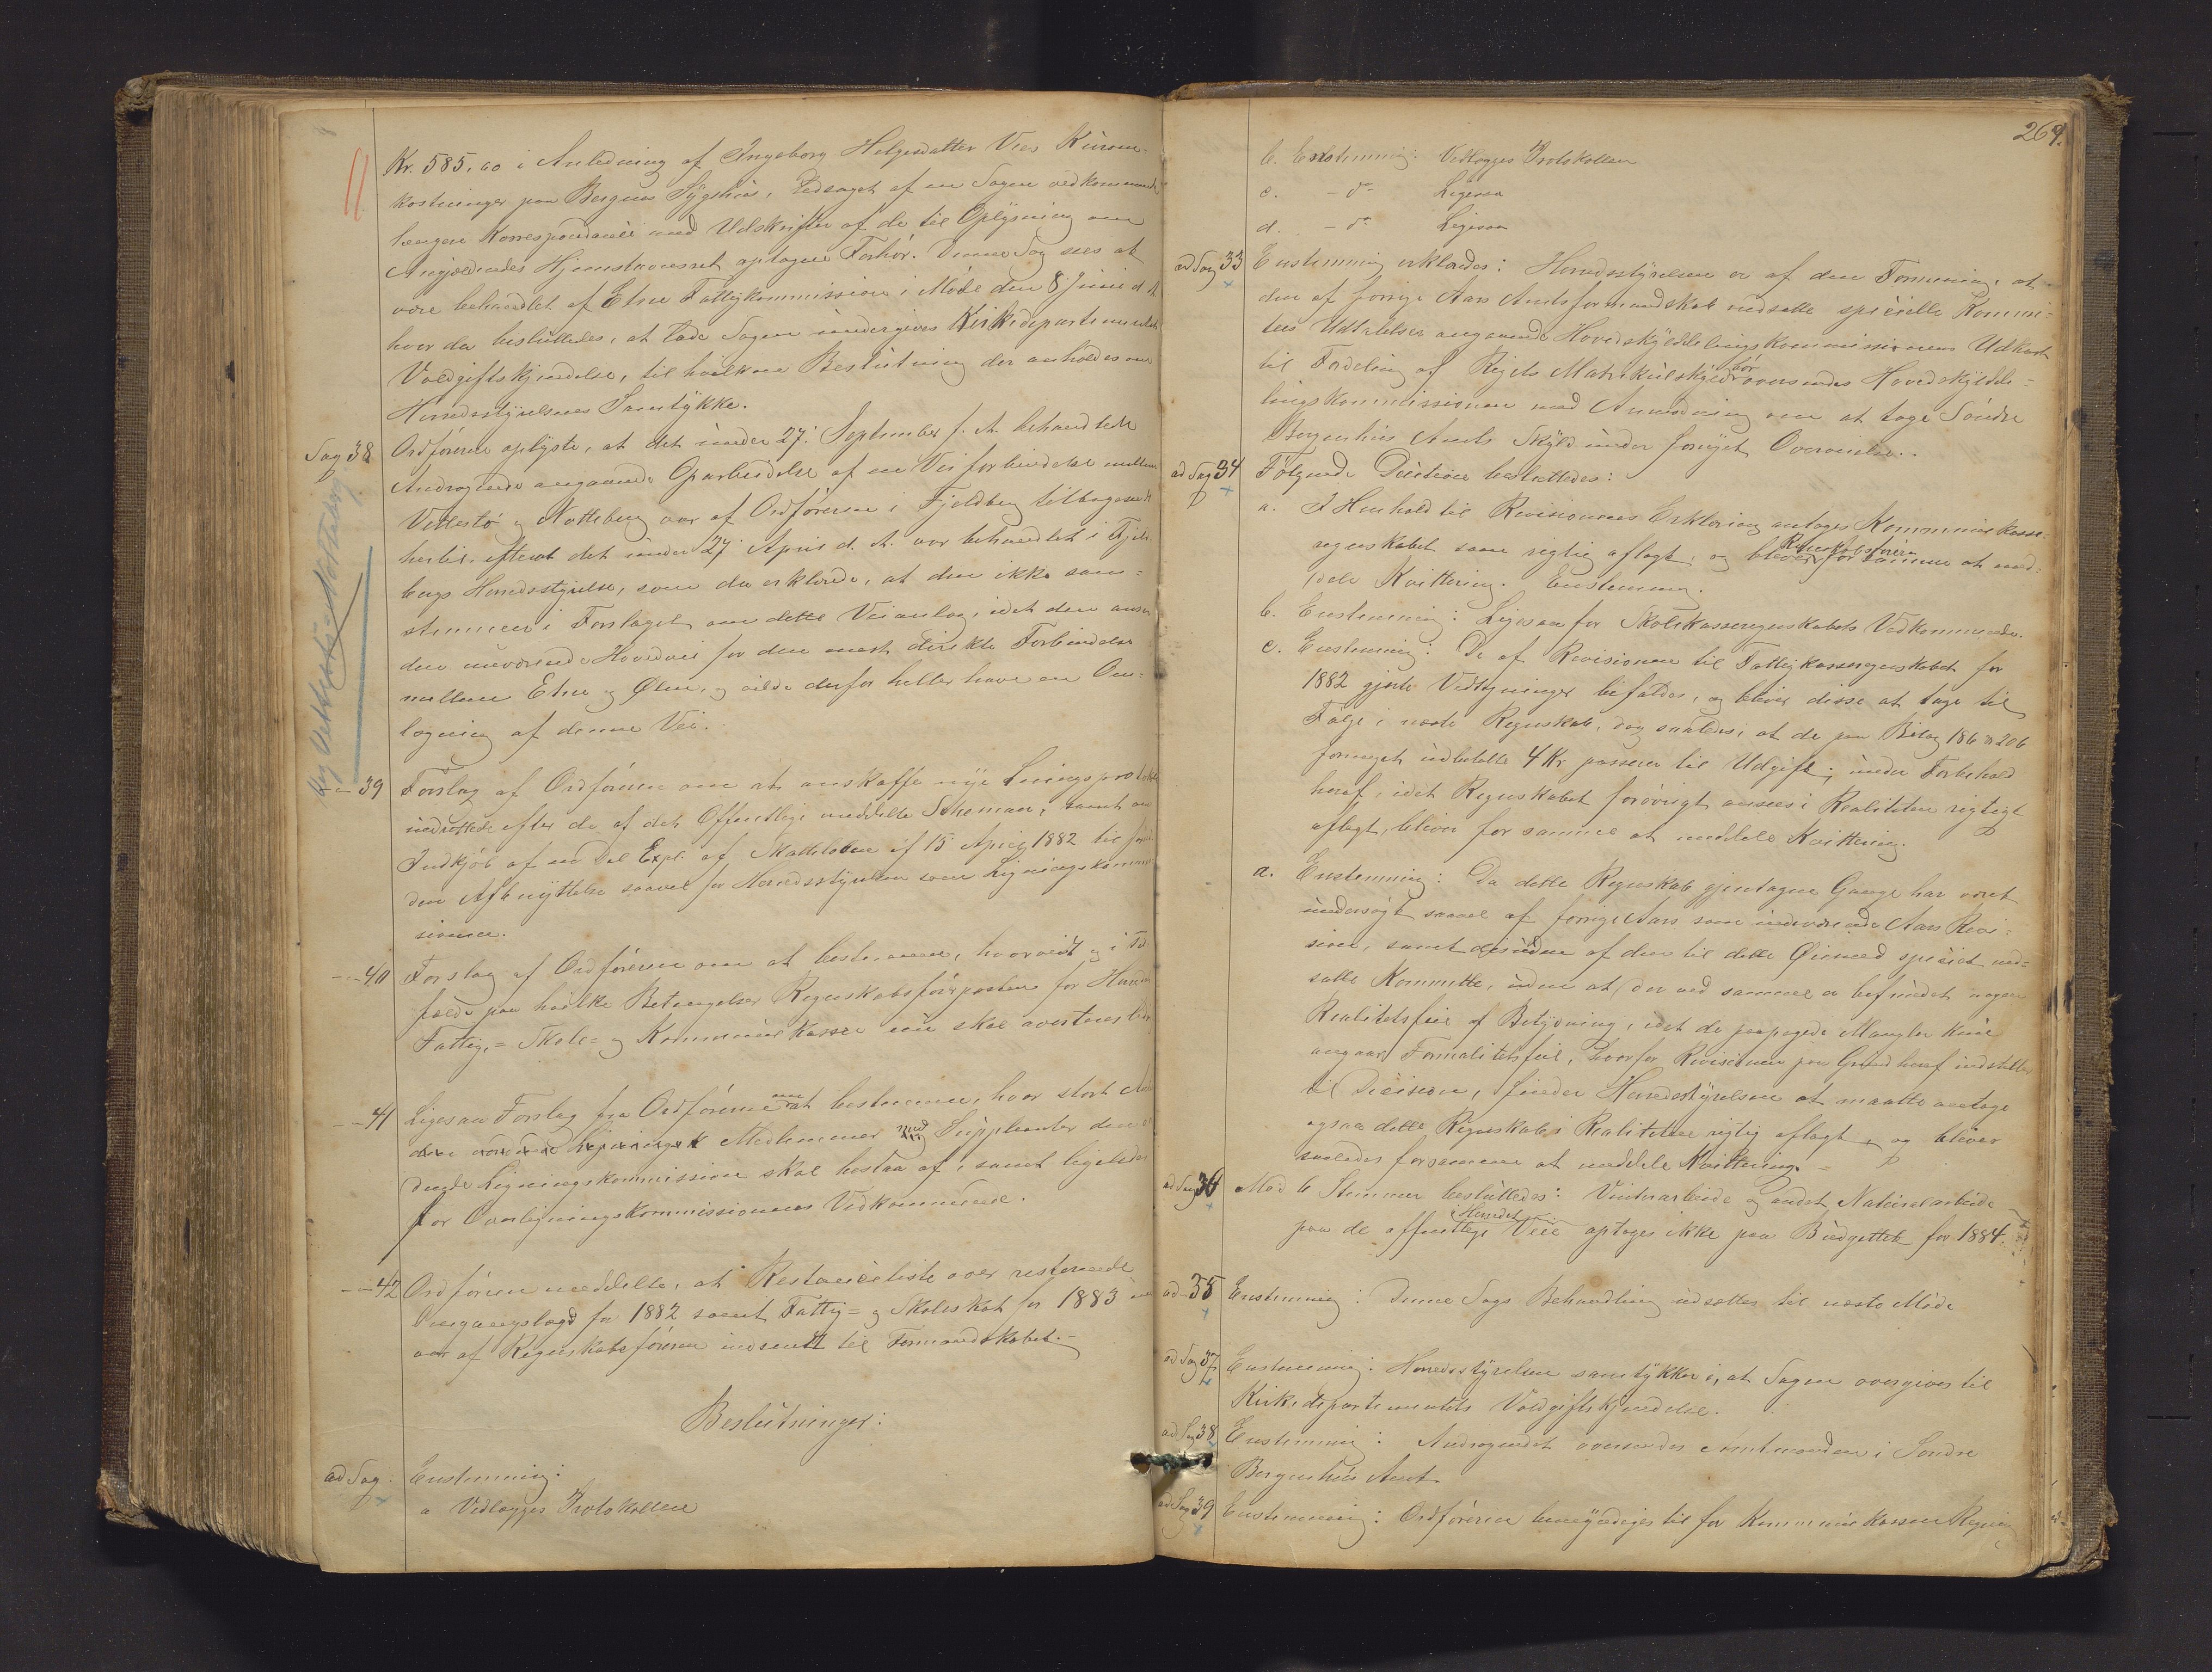 Kr. 585,60 i Anledning af Ingeborg Helgesdatter Vees Kurom-
kostninger paa Bergens Sygehus, ledsaget af en Sagen vedkommende
længere Korrespondance med Udskrifter af de til Oplysning om
Angjældendes Hjemstavnsret optagne Forhör. Denne Sag sees at
være behandlet af Etne Fattigkommission i Möde den 8 Juni d. A.
hvor da besluttedes, at lade Sagen undergives Kirkedepartementets
Voldgiftskjendelse, til hvilken Beslutning der anholdes om
Herredsstyrelsens Samtykke.
Sag 38 Ordföreren oplyste, at det under 27. September f. A. behandlede
Andragende angaaende Oparbeidelse af en Vei forbindelse mellem
Vettestö og Notteberg var af Ordföreren i Fjeldberg tilbagesendt
hertil, efterat det under 27 April d. A. var behandlet i Fjeld-
bergs Herredsstyrelse, som da erklærede, at den ikke sam-
stemmer i Forslaget om dette Veianlæg, idet den anser
den nuværende Hovedvei for den mest direkte Forbindelse
mellem Etne og Ølen, og vilde derfor heller have en Om-
lægning af denne Vei.
Vei Vettestö - Notteberg
- 39 Forslag af Ordföreren om at anskaffe nye Ligningsprotokoller
indrettede efter de af det Offentlige meddelte Schemaer, samt om
Indkjöb af en Del Expl. af Skatteloven af 15 April 1882 til for-
den Afbenyttelse saavel for Herredsstyrelsen som Ligningskommis-
sionen.
- 40 Forslag af Ordföreren om at bestemme, hvorvidt og i Til-
fælde paa hvilke Betingelser Regnskabsförerposten for Herredets
Fattig-, Skole- og Kommunekasse nu skal averteres ledig
- 41 Ligesaa Forslag fra Ordföreren om at bestemme, hvor stort Antal
Medlemmer med Suppleanter den
Ligningskommission skal bestaa af, samt ligeledes
for Overligningskommissionens Vedkommende.
- 42 Ordföreren meddelte, at Restanceliste over resterende
Omgangslægd for 1882 samt Fattig- og Skoleskat for 1883
var af Regnskabsföreren indsendt til Formandskabet.-
Beslutninger:
ad Sag Enstemmig:
a Vedlægges Protokollen
269.
b. Enstemmig: Vedlægges Protokollen
c. - do - Ligesaa
d. - do - Ligesaa
ad Sag 33 Enstemmig erklæredes: Herredsstyrelsen er af den Formening, at
den af forrige Aars Amtsformandskab nedsatte specielle Kommi-
tees Udtalelser angaaende Hovedskylddelingskommissionens Udkast
til Fordeling af Rigets Matrikulskyld bör oversendes Hovedskyldde-
lingskommissionen med Anmodning om at tage Söndre
Bergenhus Amts Skyld under fornyet Overveielse.
ad Sag 34 Fölgende Decisioner besluttedes:
a. I Henhold til Revisionens Erklæring antages Kommunekasse-
regnskabet som rigtig aflagt, og bliver Regnskabsföreren for samme at med-
dele Kvittering. Enstemmig.
b. Enstemmig: Ligesaa for Skolekasseregnskabets Vedkommende.
c. Enstemmig: De af Revisionen til Fattigkasseregnskabet for
1882 gjorte Udsætninger bifaldes, og bliver disse at tage til
Fölge i næste Regnskab, dog saaledes, at de paa Bilag 186 og 206
formeget udbetalte 4 Kr. passerer til Udgift; under Forbehold
heraf, idet Regnskabet forövrigt ansees i Realiteten rigtigt
aflagt, bliver for samme at meddele Kvittering.
a. Enstemmig: Da dette Regnskab gjentagne Gange har været
undersögt saavel af forrige Aars som indeværende Aars Revi-
sion, samt desuden af den til dette Öiemed specielt ned-
satte Kommitte, uden at der ved samme er befundet nogen
Realitetsfeil af Betydning, idet de paapegede Mangler kun
angaar Formalitetsfeil, hvorfor Revisionen paa Grund heraf indstiller
til Decision, finder Herredsstyrelsen at maatte antage
ogsaa dette Regnskab i Realiteten rigtig aflagt, og bliver
saaledes for samme at meddele Kvittering. -
ad Sag 36 Mod 6 Stemmer besluttedes: Vinterarbeide og andet Naturalarbeide
paa de offentlige Veie i Herredet optages ikke paa Budgettet for 1884.
ad - 35 Enstemmig: Denne Sags Behandling udsættes til næste Möde
ad Sag 37 Enstemmig: Herredsstyrelsen samtykker i, at Sagen overgives til
Kirkedepartementets Voldgiftskjendelse.
ad Sag 38 Enstemmig: Andragendet oversendes Amtmanden i Söndre
Bergenhus Amt
ad Sag 39 Enstemmig: Ordföreren bemyndiges til for Kommunekassens Regning